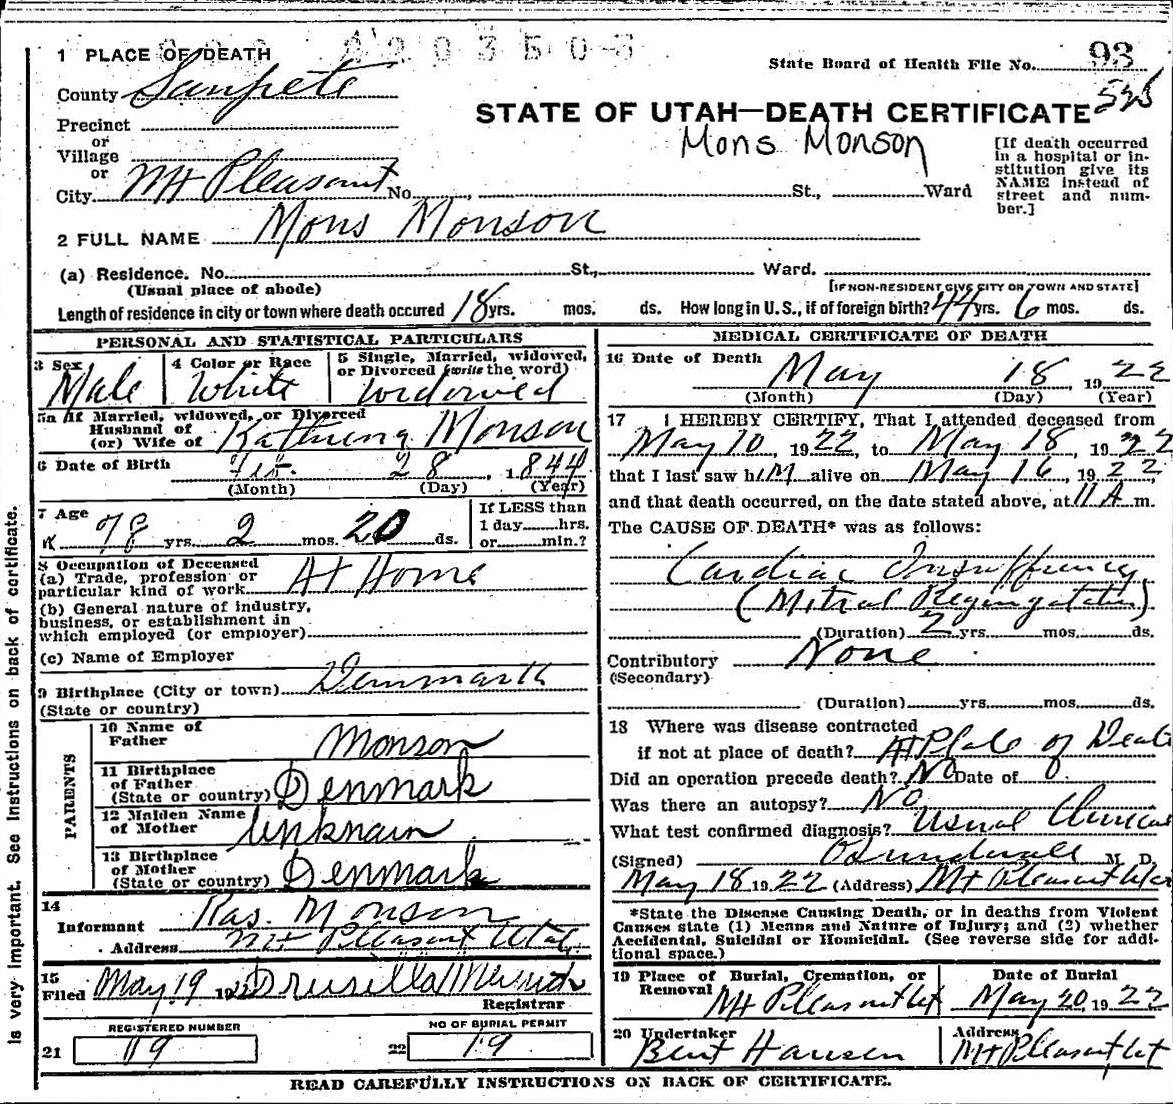 1 PLACE OF DEATH
2203503
State Board of Health File No. 93
County Sanpete
535
STATE OF UTAH—DEATH CERTIFICATE
Mons Monson
Precinct
or
Village
or
City Mt Pleasant No. St., Ward
[If death occurred in a hospital or institution give its NAME instead of street and number.]
2 FULL NAME Mons Monson
(a) Residence. No. St., Ward.
(Usual place of abode)
[IF NON-RESIDENT GIVE CITY OR TOWN AND STATE]
Length of residence in city or town where death occured 18 yrs. mos. ds. How long in U.S., if of foreign birth? 44 yrs. 6 mos. ds.
PERSONAL AND STATISTICAL PARTICULARS
3 Sex Male
4 Color or Race White
5 Single, Married, widowed, or Divorced (write the word) widowed
5a If Married, widowed, or Divorced
Husband of
(or) Wife of Kathrena Monson
6 Date of Birth Feb. 28, 1844
(Month) (Day) (Year)
7 Age 78 yrs. 2 mos. 20 ds.
If LESS than
1 day hrs.
or min.?
8 Occupation of Deceased
(a) Trade, profession or
particular kind of work At Home
(b) General nature of industry,
business, or establishment in
which employed (or employer)
(c) Name of Employer
9 Birthplace (City or town) Denmark
(State or country)
PARENTS
10 Name of
Father Monson
11 Birthplace
of Father
(State or country) Denmark
12 Maiden Name
of Mother unknawn
13 Birthplace
of Mother
(State or country) Denmark
14
Informant Ras. Monson
Address Mt Pleasant Utah
15
Filed May 19 1922 Drusilla
Registrar
REGISTERED NUMBER
21 19
NO OF BURIAL PERMIT
22 19
MEDICAL CERTIFICATE OF DEATH
16 Date of Death May 18, 1922
(Month) (Day) (Year)
17 I HEREBY CERTIFY, That I attended deceased from
May 10, 1922, to May 18, 1922
that I last saw him alive on May 16, 1922,
and that death occurred, on the date stated above, at 11 A m.
The CAUSE OF DEATH* was as follows:
Cardiac Insufficiency
(Mitral Regurgitation)
(Duration) 2 yrs. mos. ds.
Contributory None
(Secondary)
(Duration) yrs. mos. ds.
18 Where was disease contracted
if not at place of death? At Place of Death
Did an operation precede death? No Date of
Was there an autopsy? No
What test confirmed diagnosis? Usual Clinical
(Signed) M. D.
May 18 1922 (Address) Mt Pleasant
*State the Disease Causing Death, or in deaths from Violent
Causes state (1) Means and Nature of Injury; and (2) whether
Accidental, Suicidal or Homicidal. (See reverse side for additional space.)
19 Place of Burial, Cremation, or
Removal Mt Pleasant Ut
Date of Burial
May 20, 1922
20 Undertaker
Bent Hansen
Address
Mt Pleasant Ut
READ CAREFULLY INSTRUCTIONS ON BACK OF CERTIFICATE.
is very important. See Instructions on back of certificate.